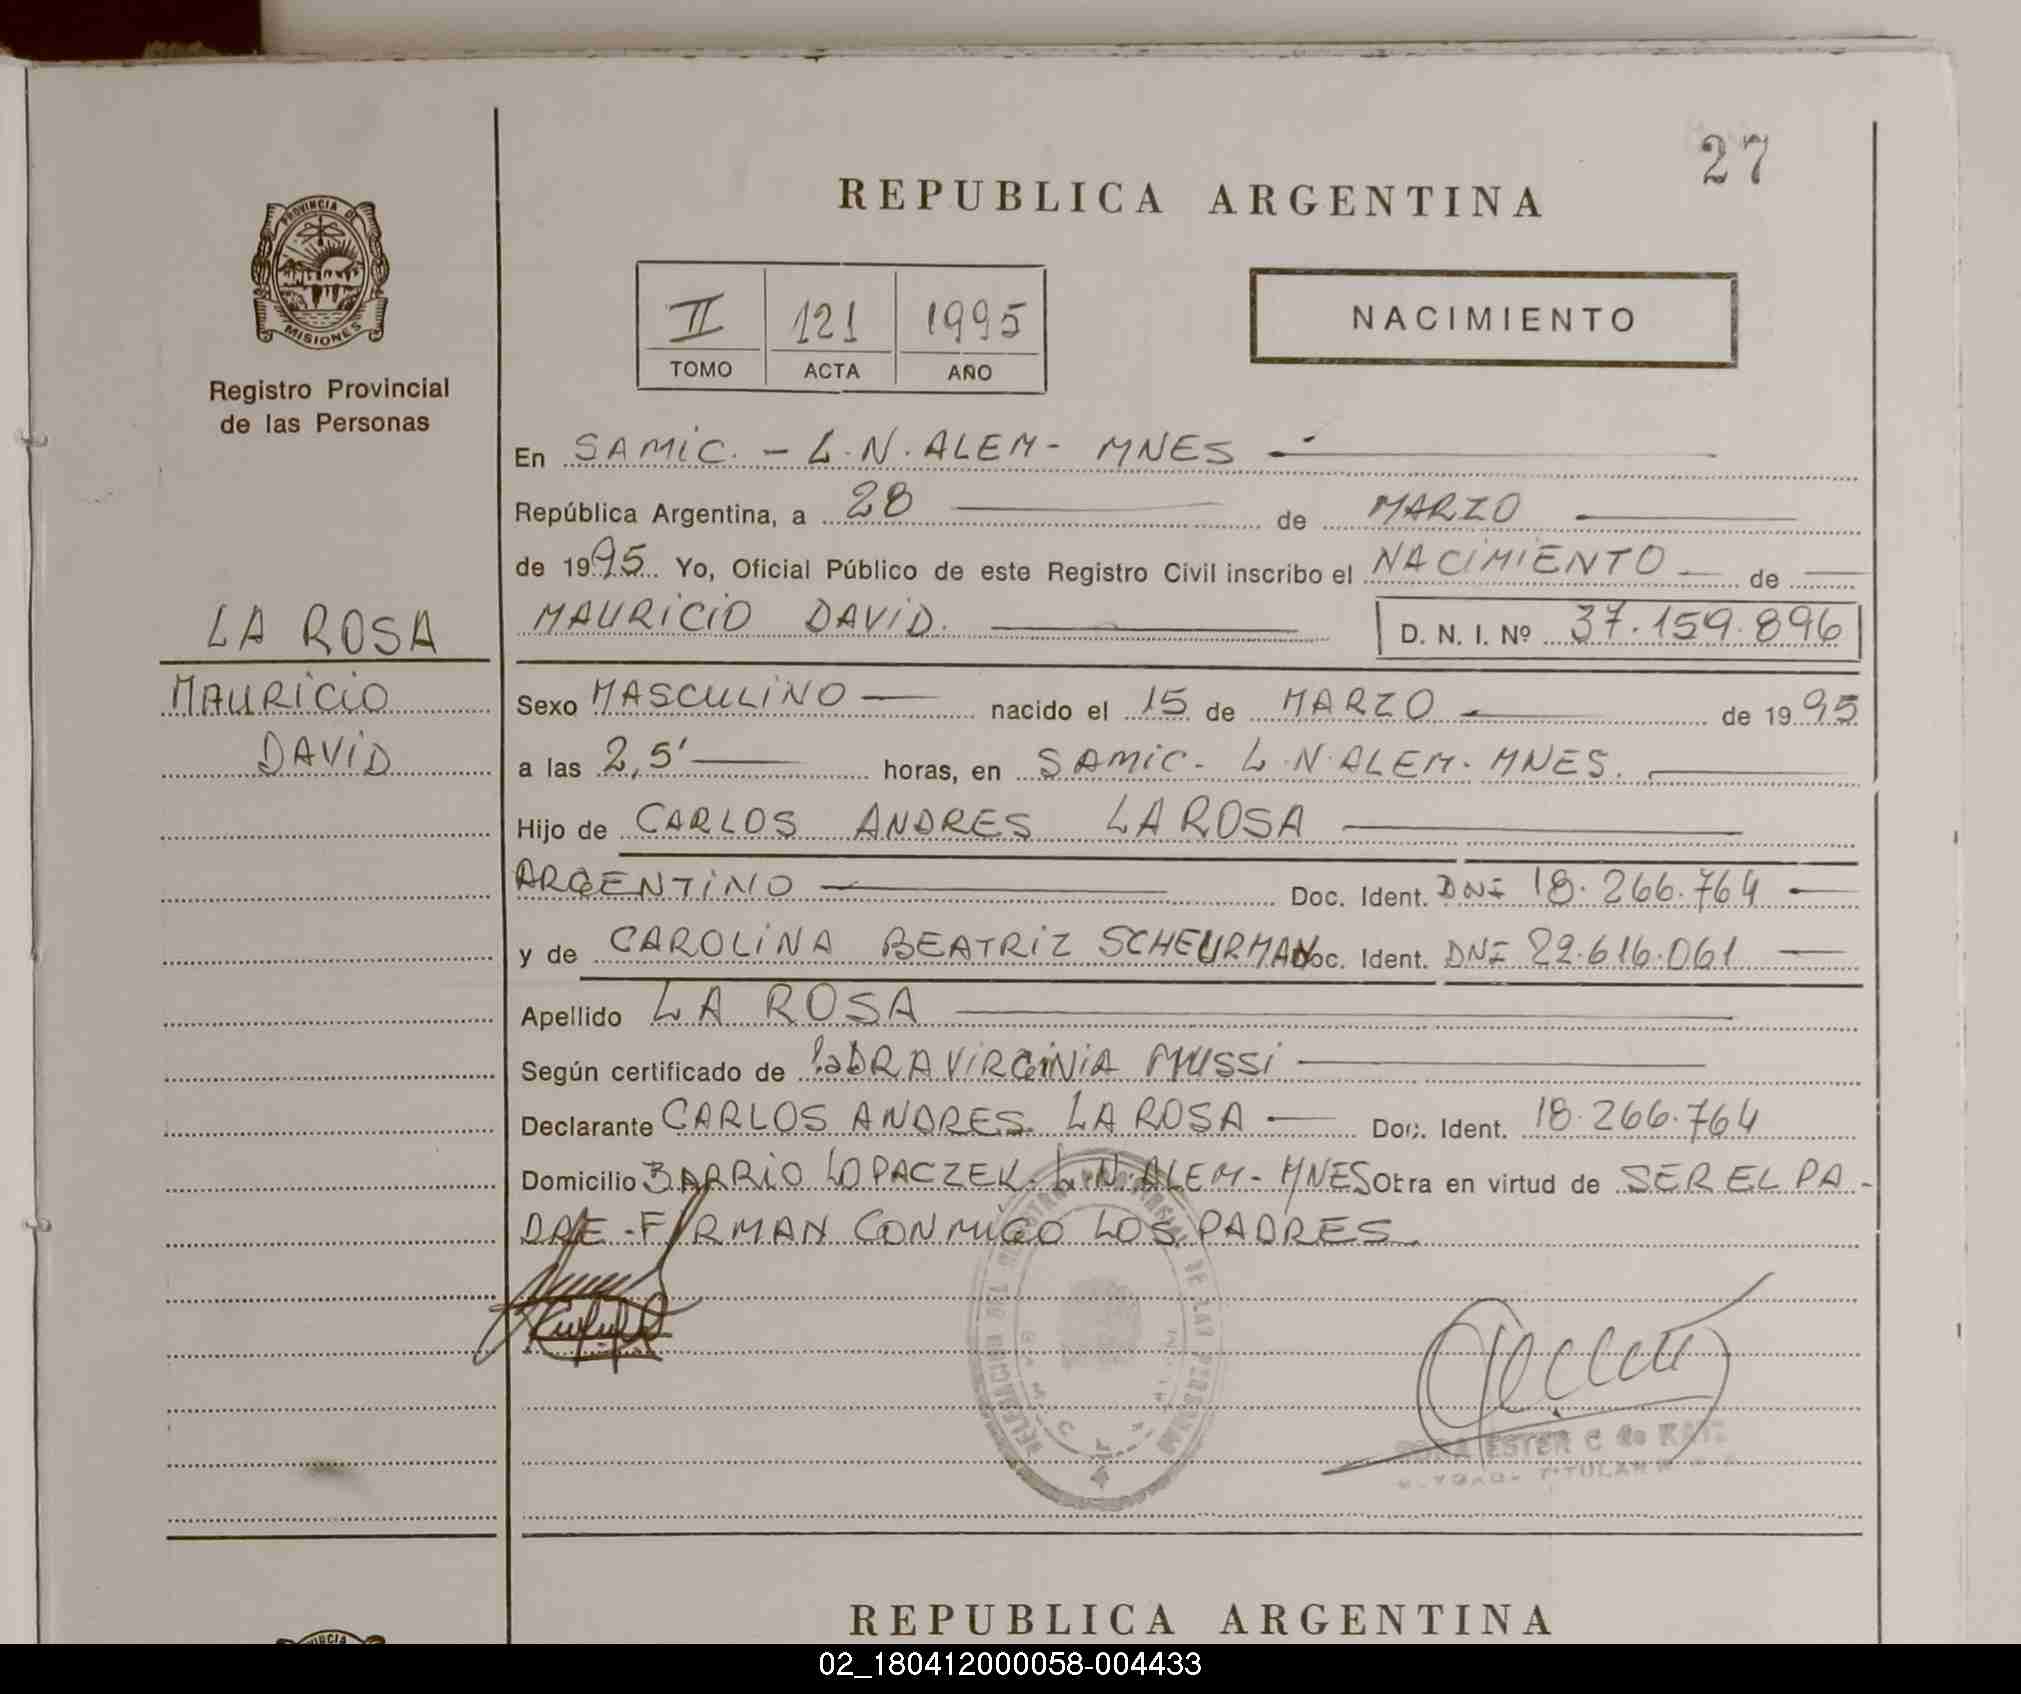 27
REPUBLICA ARGENTINA
PROVINCIA DE
MISIONES
Registro Provincial
de las Personas
II 121 1995
TOMO ACTA AÑO
NACIMIENTO
En SAMIC. - L.N. ALEM - MNES
República Argentina, a 28 de MARZO
de 1995 Yo, Oficial Público de este Registro Civil inscribo el NACIMIENTO de
MAURICIO DAVID. D. N. I. Nº 37.159.896
LA ROSA
MAURICIO
DAVID
Sexo MASCULINO nacido el 15 de MARZO de 1995
a las 2,5' horas, en SAMIC - L.N. ALEM - MNES.
Hijo de CARLOS ANDRES LA ROSA
ARGENTINO Doc. Ident. DNI 18.266.764
y de CAROLINA BEATRIZ SCHEURMAN Doc. Ident. DNI 22.616.061
Apellido LA ROSA
Según certificado de la DRA VIRGINIA MUSSI
Declarante CARLOS ANDRES LA ROSA Doc. Ident. 18.266.764
Domicilio BARRIO LOPACZEK - L.N. ALEM - MNES Obra en virtud de SER EL PA-
DRE - FIRMAN CONMIGO LOS PADRES.
ESTER C de KATZ
TITULAR
REPUBLICA ARGENTINA
02_180412000058-004433